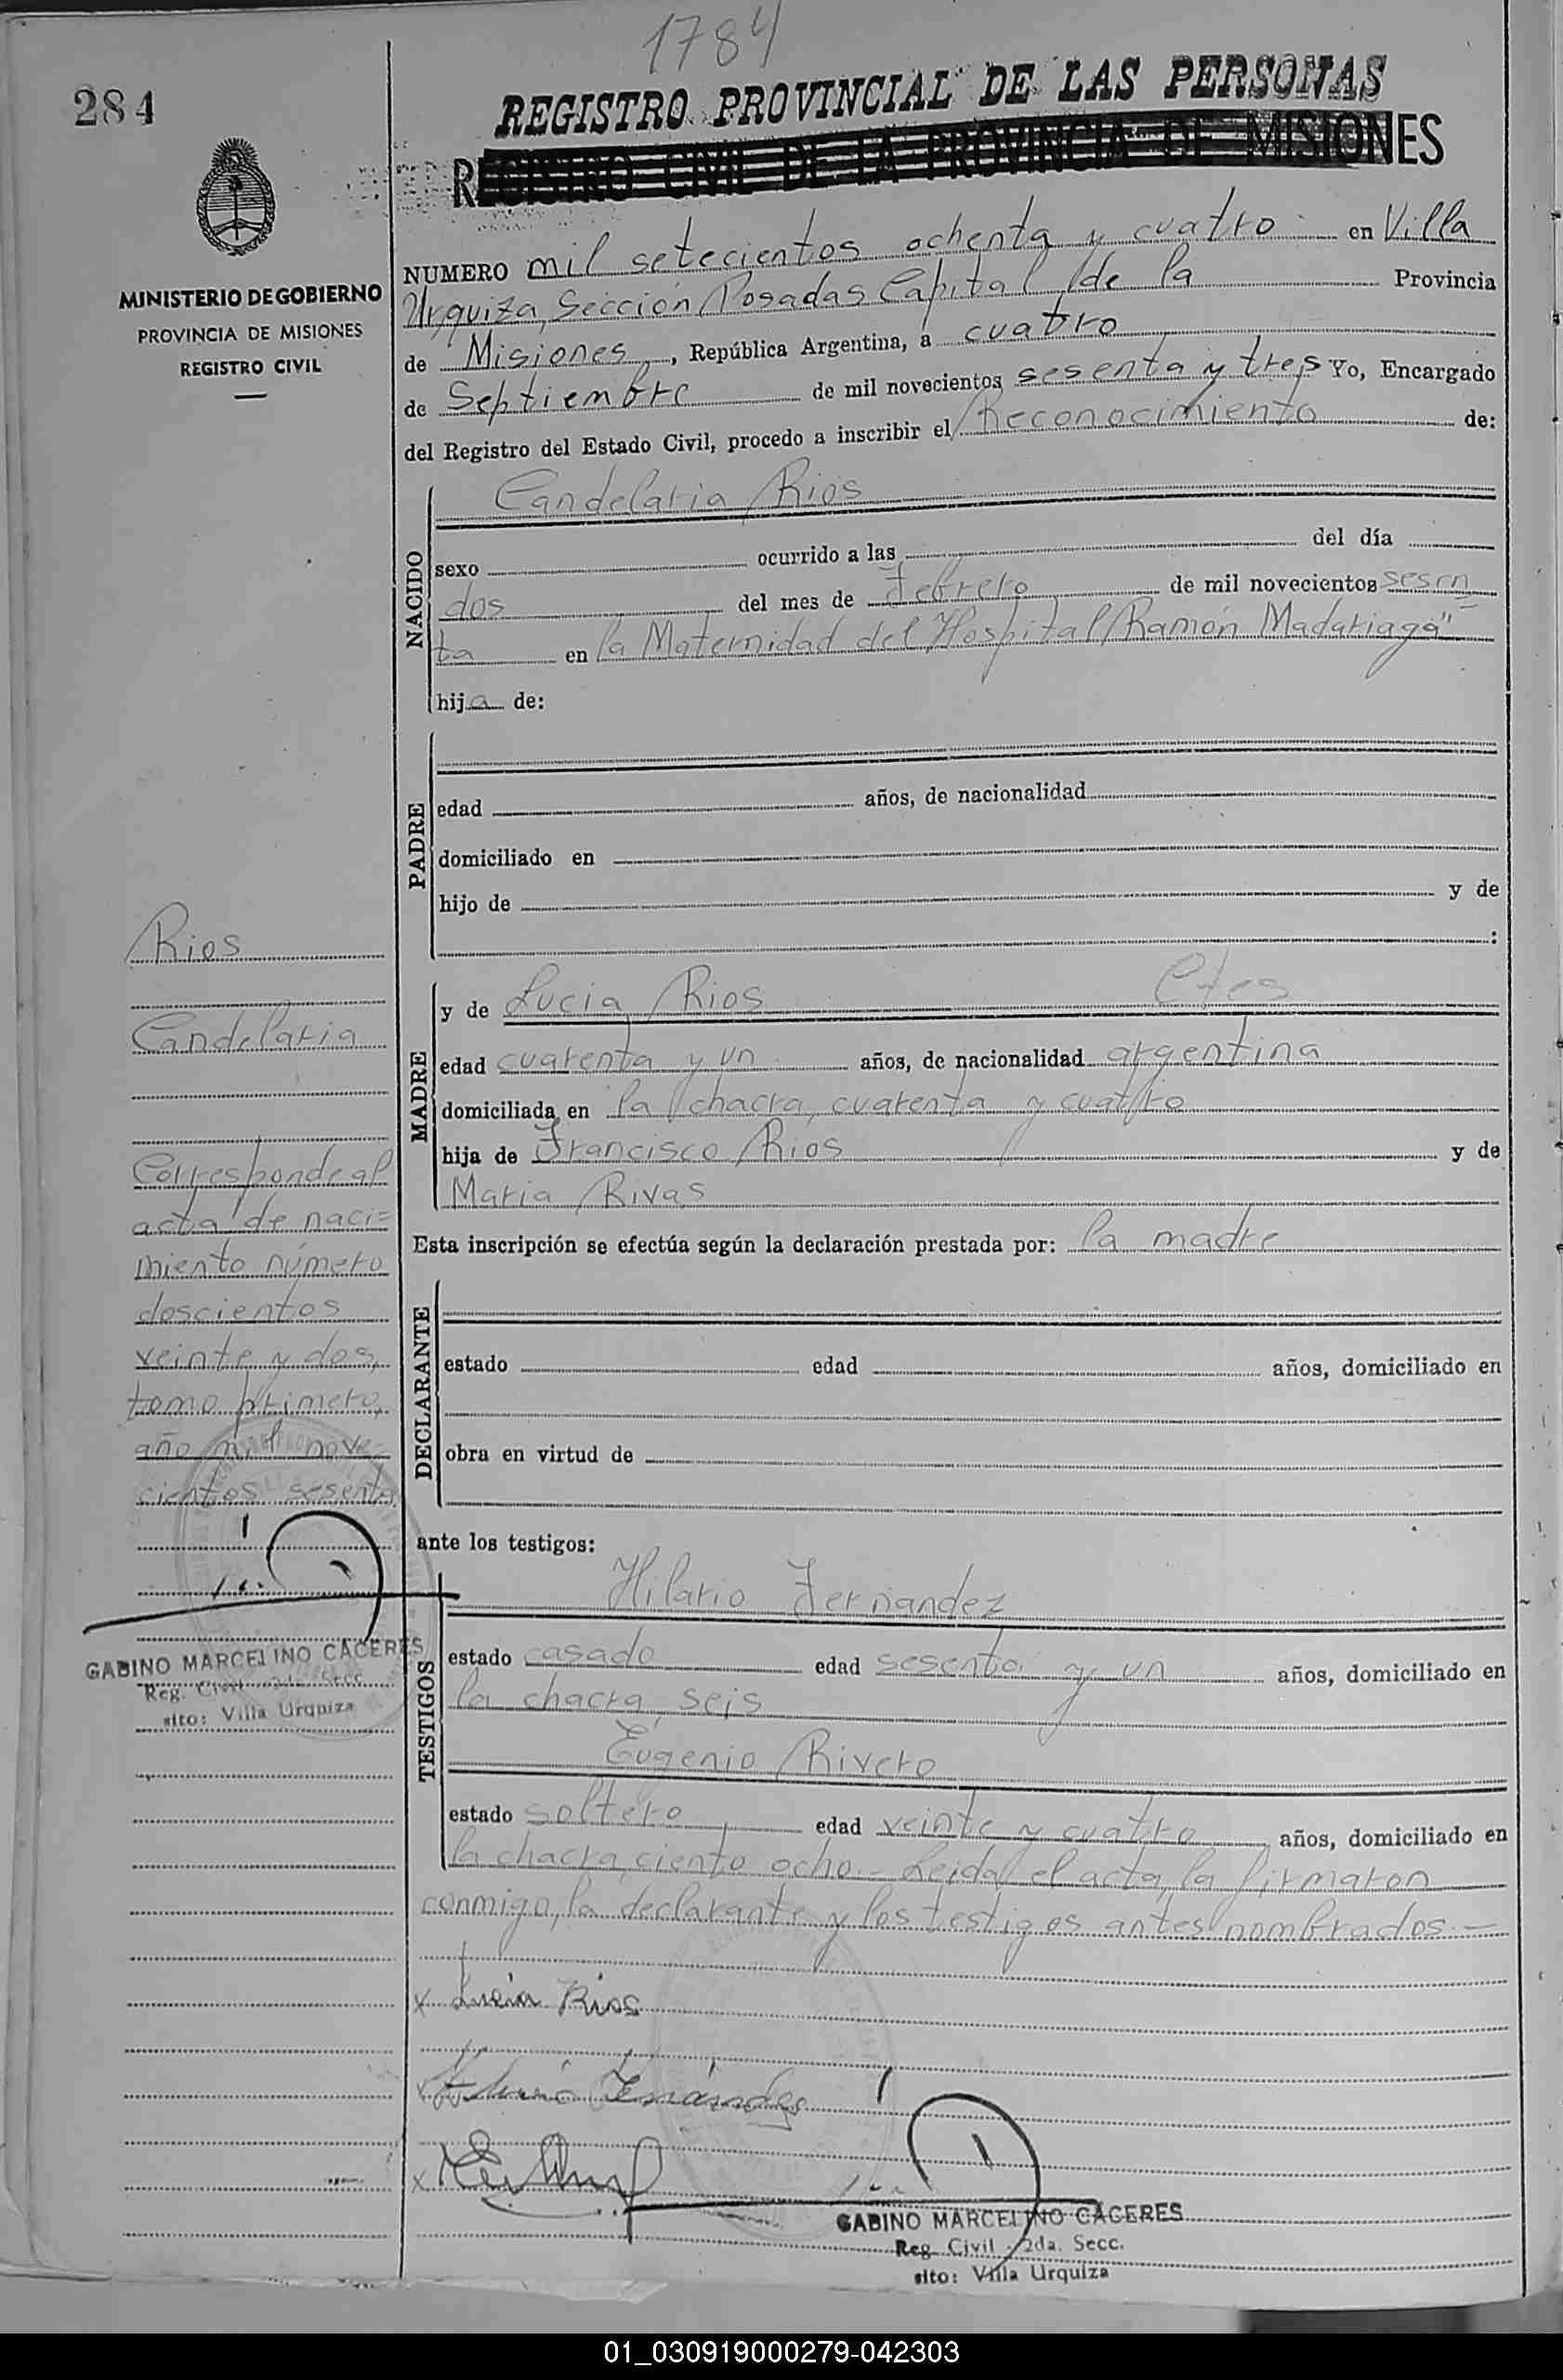 1784
284
REGISTRO PROVINCIAL DE LAS PERSONAS
REGISTRO CIVIL DE LA PROVINCIA DE MISIONES
MINISTERIO DE GOBIERNO
PROVINCIA DE MISIONES
REGISTRO CIVIL
NUMERO mil setecientos ochenta y cuatro en Villa
Urquiza, Sección Posadas Capital de la Provincia
de Misiones, República Argentina, a cuatro
de Septiembre de mil novecientos sesenta y tres Yo, Encargado
del Registro del Estado Civil, procedo a inscribir el Reconocimiento de:
NACIDO
Candelaria Rios
sexo ocurrido a las del día
dos del mes de Febrero de mil novecientos sesen=
ta en la Maternidad del Hospital Ramón Madariaga"
hija de:
PADRE
edad años, de nacionalidad
domiciliado en
hijo de y de
:
MADRE
y de Lucia Rios Ctes
edad cuarenta y un años, de nacionalidad argentina
domiciliada en la chacra, cuarenta y cuatro
hija de Francisco Rios y de
Maria Rivas
Esta inscripción se efectúa según la declaración prestada por: la madre
DECLARANTE
estado edad años, domiciliado en
obra en virtud de
ante los testigos:
TESTIGOS
Hilario Fernandez
estado casado edad sesenta y un años, domiciliado en
la chacra seis
Eugenio Rivero
estado soltero edad veinte y cuatro años, domiciliado en
la chacra, ciento ocho.- Leida el acta, la firmaron
conmigo, la declarante y los testigos antes nombrados.-
x Lucia Rios
x Fernandes
x
GABINO MARCELINO CACERES
Reg. Civil 2da. Secc.
sito: Villa Urquiza
Rios
Candelaria
Corresponde al
acta de naci=
miento número
doscientos
veinte y dos,
tomo primero,
año mil nove-
cientos sesenta
GABINO MARCELINO CACERES
Reg. Civil 2da. Secc.
sito: Villa Urquiza
01_030919000279-042303